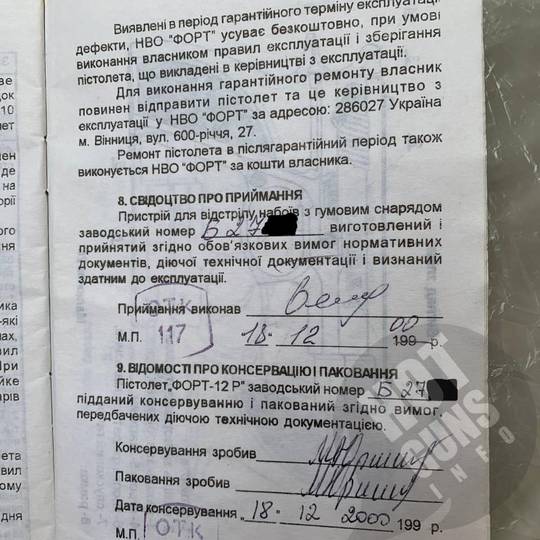 Виявлені в період гарантійного терміну експлуатації
дефекти, НВО "ФОРТ" усуває безкоштовно, при умові
виконання власником правил експлуатації і зберігання
пістолета, що викладені в керівництві з експлуатації.
Для виконання гарантійного ремонту власник
повинен відправити пістолет та це керівництво з
експлуатації у НВО "ФОРТ" за адресою: 286027 Україна
м. Вінниця, вул. 600-річчя, 27.
Ремонт пістолета в післягарантійний період також
виконується НВО "ФОРТ" за кошти власника.
8. СВІДОЦТВО ПРО ПРИЙМАННЯ
Пристрій для відстрілу набоїв з гумовим снарядом
заводський номер Б 27 виготовлений і
прийнятий згідно обов'язкових вимог нормативних
документів, діючої технічної документації і визнаний
здатним до експлуатації.
Приймання виконав
ОТК
117
М.П. 18. 12 00 199 р.
9. ВІДОМОСТІ ПРО КОНСЕРВАЦІЮ І ПАКОВАННЯ
Пістолет „ФОРТ-12 Р" заводський номер Б 27
підданий консервуванню і пакований згідно вимог,
передбачених діючою технічною документацією.
Консервування зробив
Паковання зробив
Дата консервування 18. 12 2000 199 р.
М.П.
ОТК
HOT
GUNS
INFO